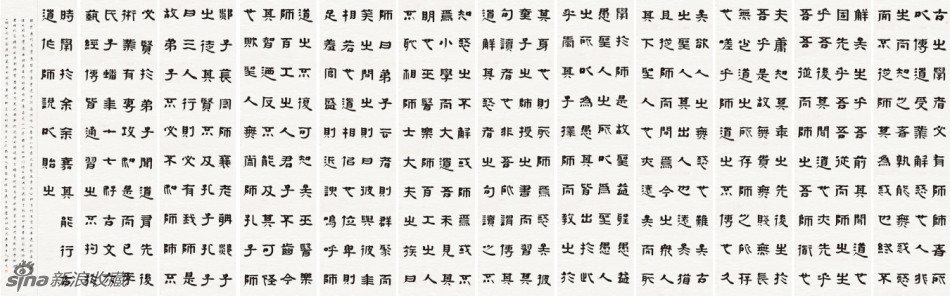 古之學者必有師師者所
以傳道受業解惑也人非
生而知之者孰能無惑惑
而不從師其為惑也終不
解矣生乎吾前其聞道也
固先乎吾吾從而師之生
乎吾後其聞道也亦先乎
吾吾從而師之吾師道也
夫庸知其年之先後生於
吾乎是故無貴無賤無長
無少道之所存師之所存
也嗟乎師道之不傳也久
矣欲人之無惑也難矣古
之聖人其出人也遠矣猶
且從師而問焉今之眾人
其下聖人也亦遠矣而恥
學於師是故聖益聖愚益
愚聖人之所以為聖愚人
之所以為愚其皆出於此
乎愛其子擇師而教之於
其身也則恥師焉惑矣彼
童子之師授之書而習其
句讀者也非吾所謂傳其
道解其惑者也句讀之不
知惑之不解或師焉或不
焉小學而大遺吾未見其
明也巫醫樂師百工之人
不恥相師士大夫之族曰
師曰弟子云者則群聚而
笑之問之則曰彼與彼年
相若也道相似也位卑則
足羞官盛則近諛嗚呼師
道之不復可知矣巫醫樂
師百工之人君子不齒今
其智乃反不能及其可怪
也歟聖人無常師孔子師
郯子萇弘師襄老聃郯子
之徒其賢不及孔子孔子
曰三人行則必有我師是
故弟子不必不如師師不
必賢於弟子聞道有先後
術業有專攻如是而已李
氏子蟠年十七好古文六
藝經傳皆通習之不拘於
時學於余余嘉其能行古
道作師說以貽之
sina新浪收藏